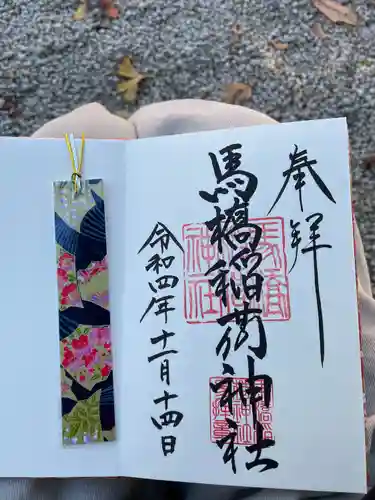 奉拝
馬橋稲荷神社
令和四年十一月十四日